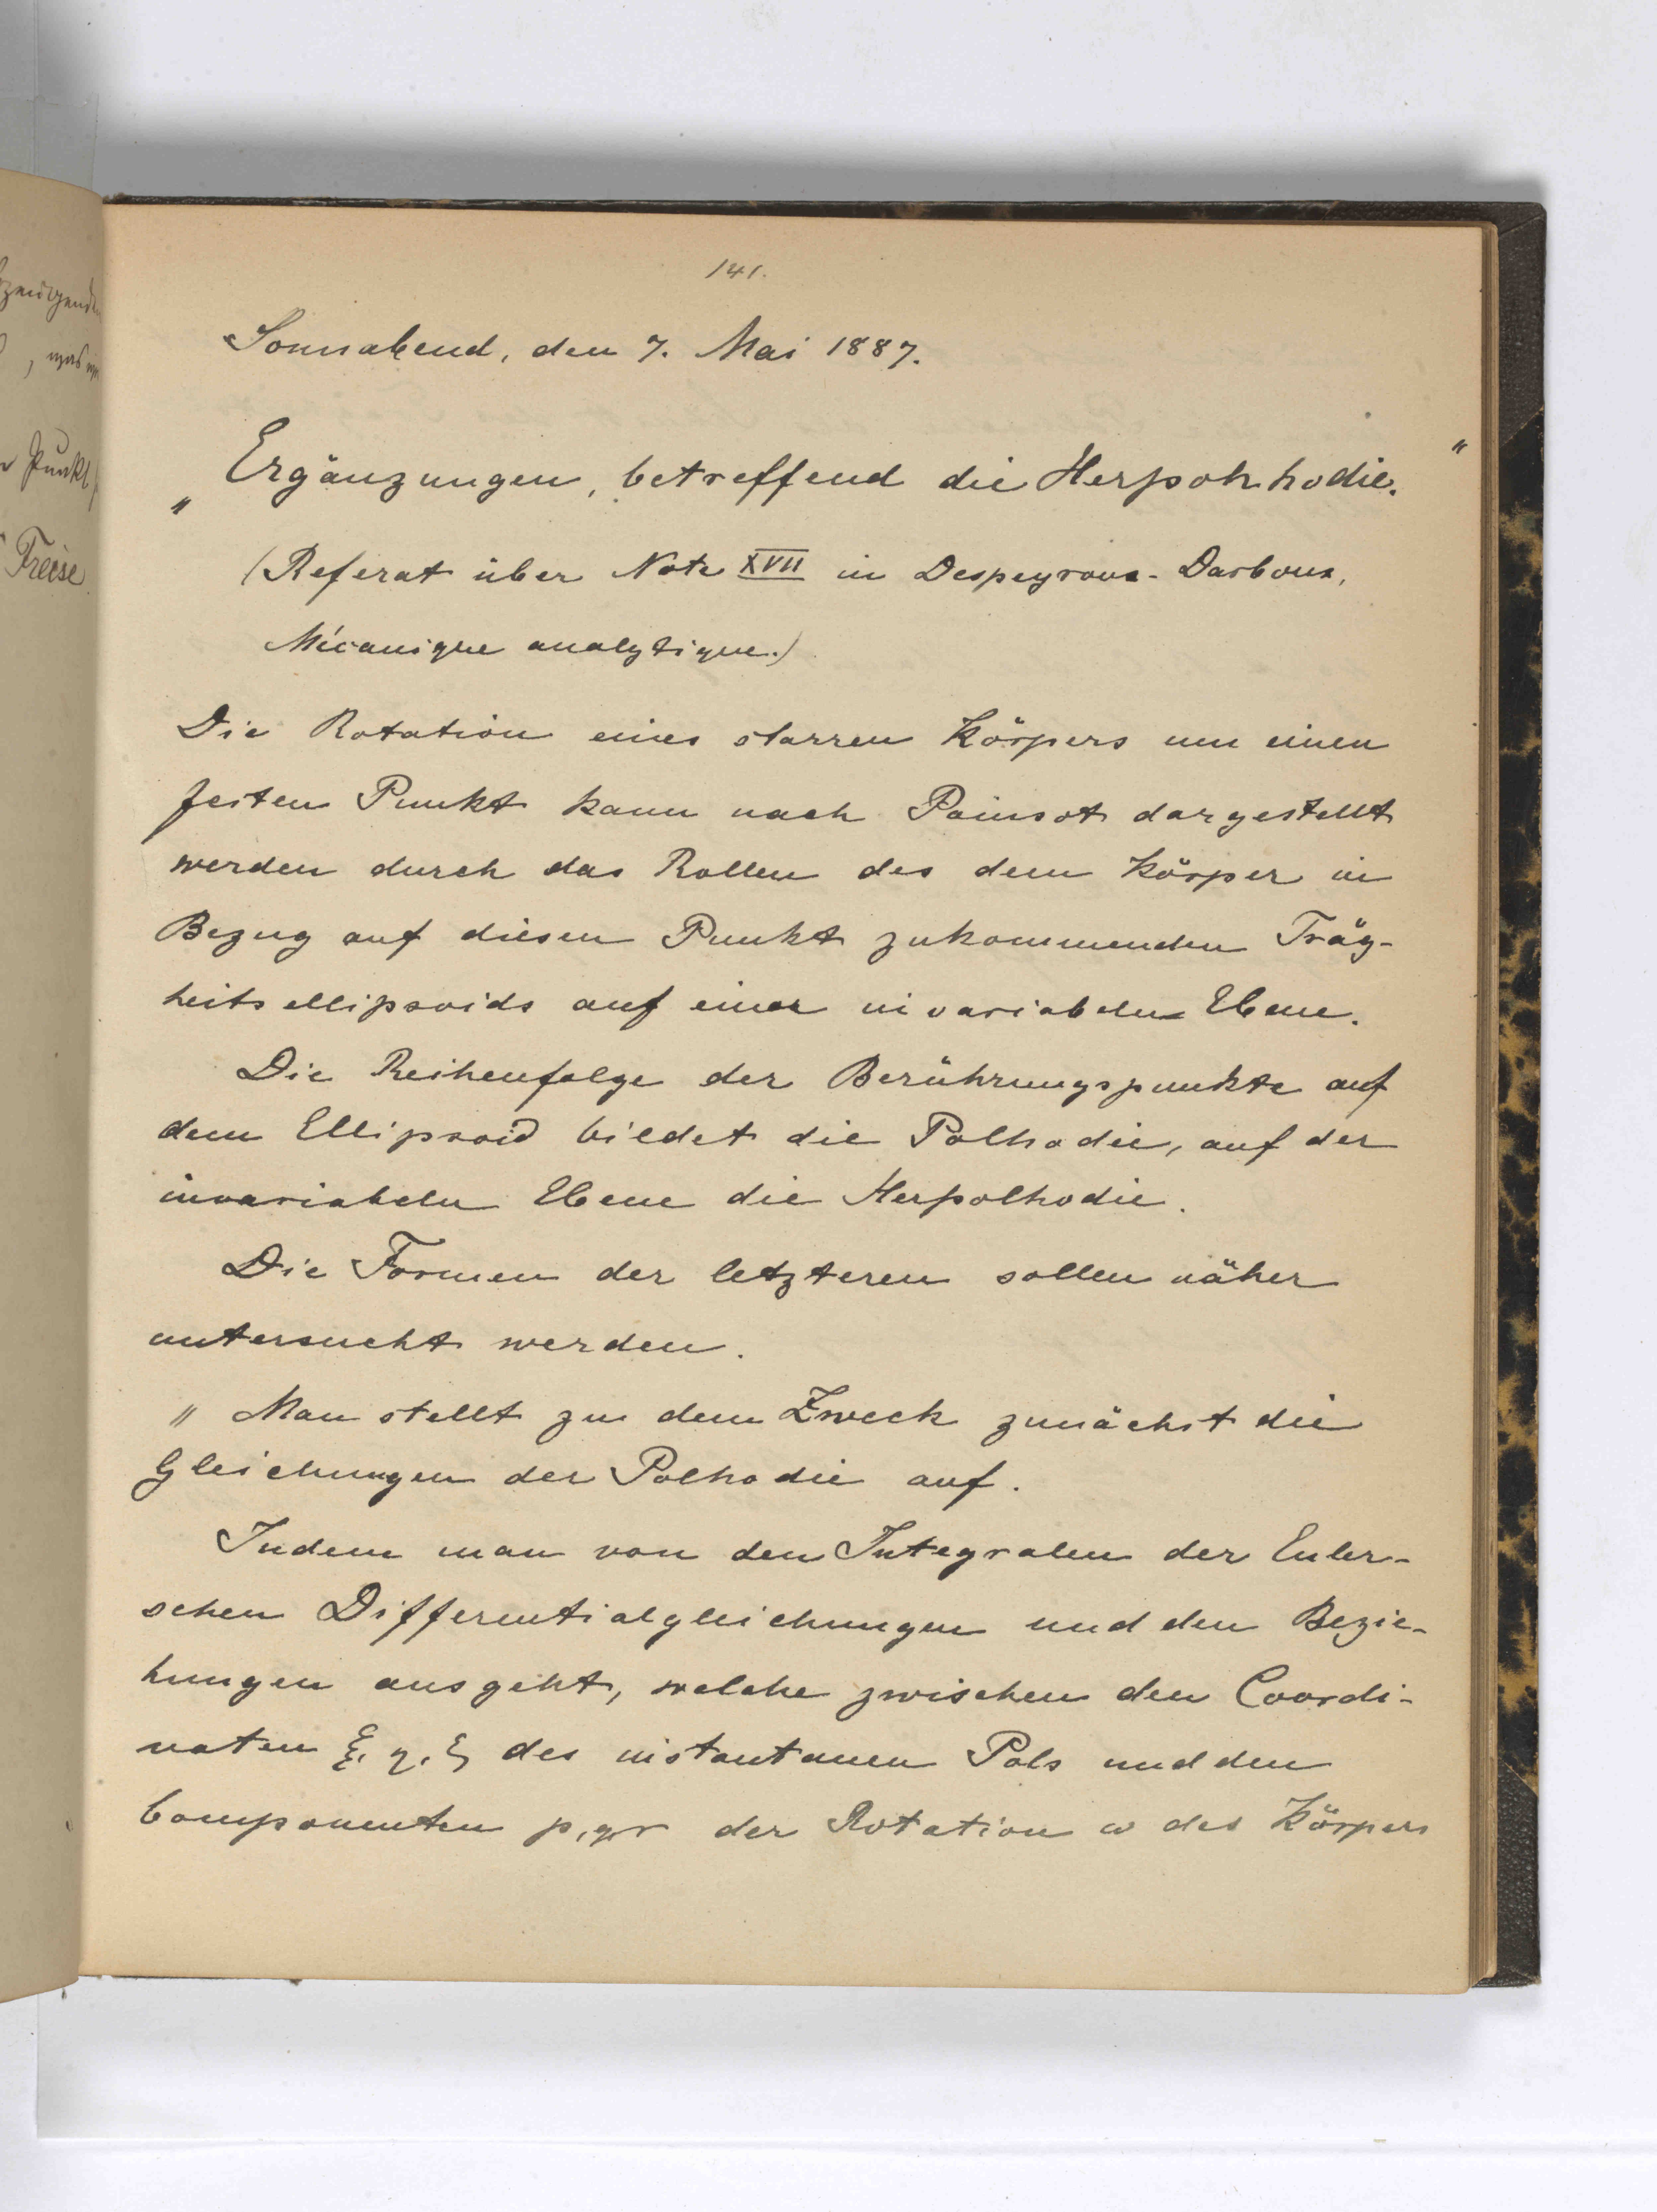 141.
Sonnabend, den 7. Mai 1887.
„Ergänzungen, betreffend die Herpohhodie."
(Referat über Note XVII in Despeyrous-Darboux,
Mécanique analytique.)
Die Rotation eines starren Körpers um einen
festen Punkt kann nach Poinsot dargestellt
werden durch das Rollen des dem Körper in
Bezug auf diesen Punkt zukommenden Träg-
heitsellipsoids auf einer invariabeln Ebene.
Die Reihenfolge der Berührungspunkte auf
dem Ellipsoid bildet die Polhodie, auf der
invariabeln Ebene die Herpolhodie.
Die Formen der letzteren sollen näher
untersucht werden.
" Man stellt zu dem Zweck zunächst die
Gleichungen der Polhodie auf.
Indem man von den Integralen der Euler-
schen Differentialgleichungen und den Bezie-
hungen ausgeht, welche zwischen den Coordi-
naten ξ, η, ζ des instantanen Pols und den
Componenten p, q, r der Rotation ω des Körpers
Punkt
Treise